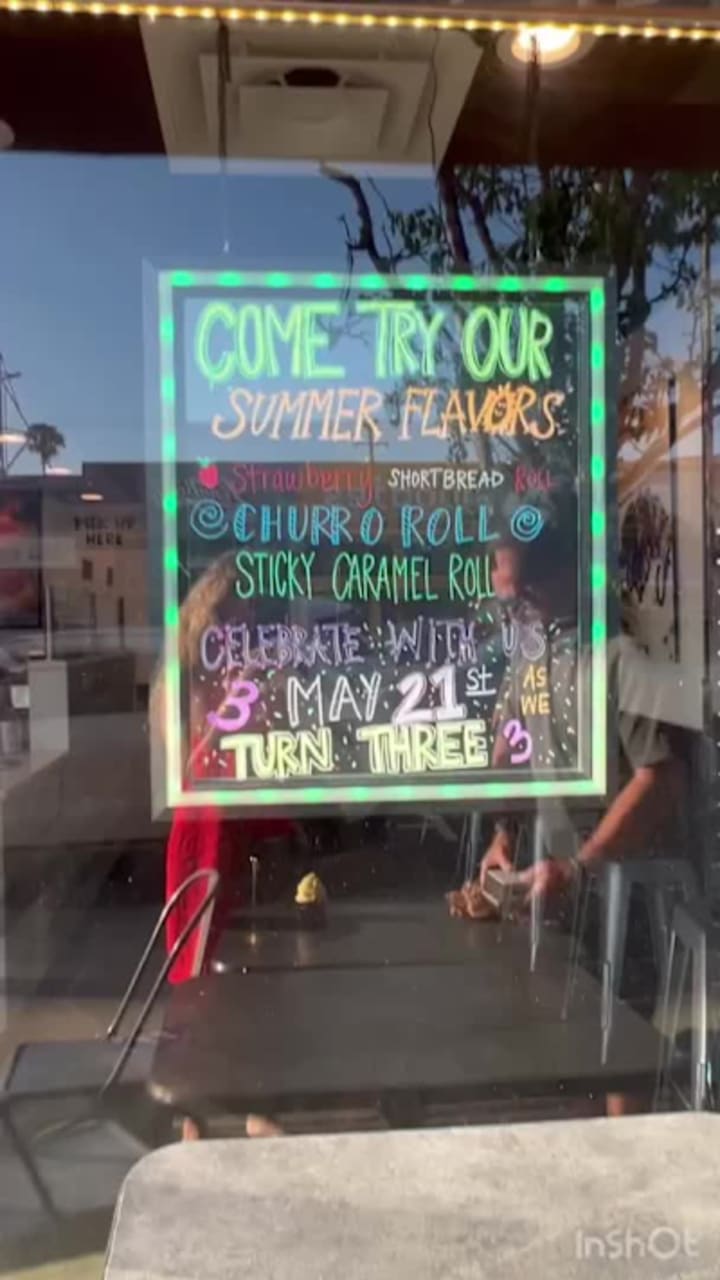 COME TRY OUR
SUMMER FLAVORS
Strawberry SHORTBREAD ROLL
CHURRO ROLL
STICKY CARAMEL ROLL
CELEBRATE WITH US
3 MAY 21st AS WE
TURN THREE 3
PICK UP
HERE
InShOt